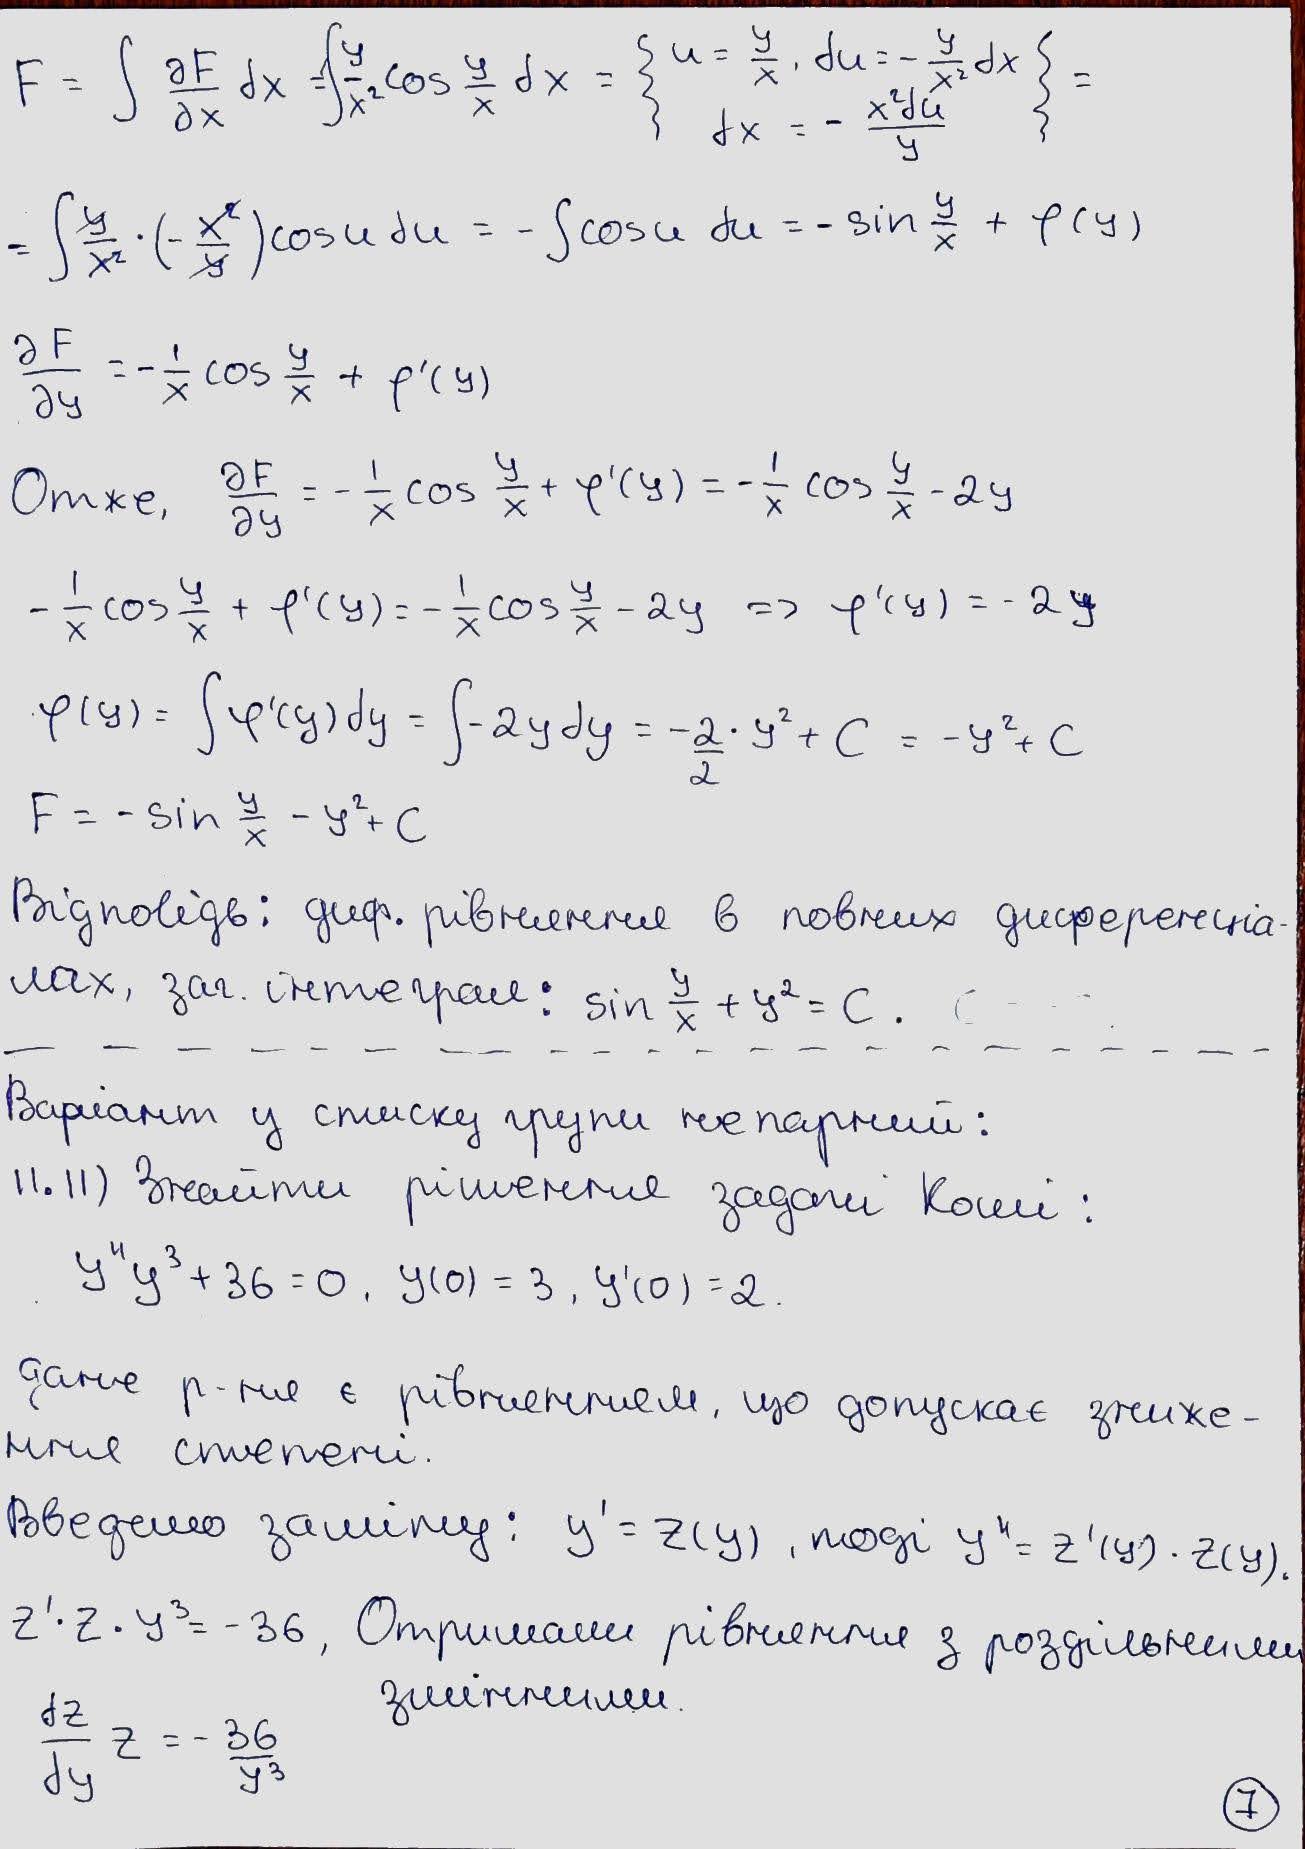 F = ∫ ∂F/∂x dx = ∫ y/x² cos y/x dx = { u = y/x, du = - y/x² dx
dx = - x²du/y } =
= ∫ y/x² · (- x²/y) cos u du = - ∫ cos u du = - sin y/x + φ(y)
∂F/∂y = - 1/x cos y/x + φ'(y)
Отже, ∂F/∂y = - 1/x cos y/x + φ'(y) = - 1/x cos y/x - 2y
- 1/x cos y/x + φ'(y) = - 1/x cos y/x - 2y => φ'(y) = - 2y
φ(y) = ∫ φ'(y) dy = ∫ -2y dy = - 2/2 · y² + C = - y² + C
F = - sin y/x - y² + C
Відповідь: диф. рівняння в повних диференціа-
лах, заг. інтеграл: sin y/x + y² = C.
Варіант у списку групи непарний:
11.11) Знайти рішення задачі Коші:
y'' y³ + 36 = 0, y(0) = 3, y'(0) = 2.
Дане р-ня є рівнянням, що допускає зниже-
ння степені.
Введемо заміну: y' = z(y), тоді y'' = z'(y) · z(y).
z' · z · y³ = - 36, Отримали рівняння з роздільними
змінними.
dz/dy z = - 36/y³
7